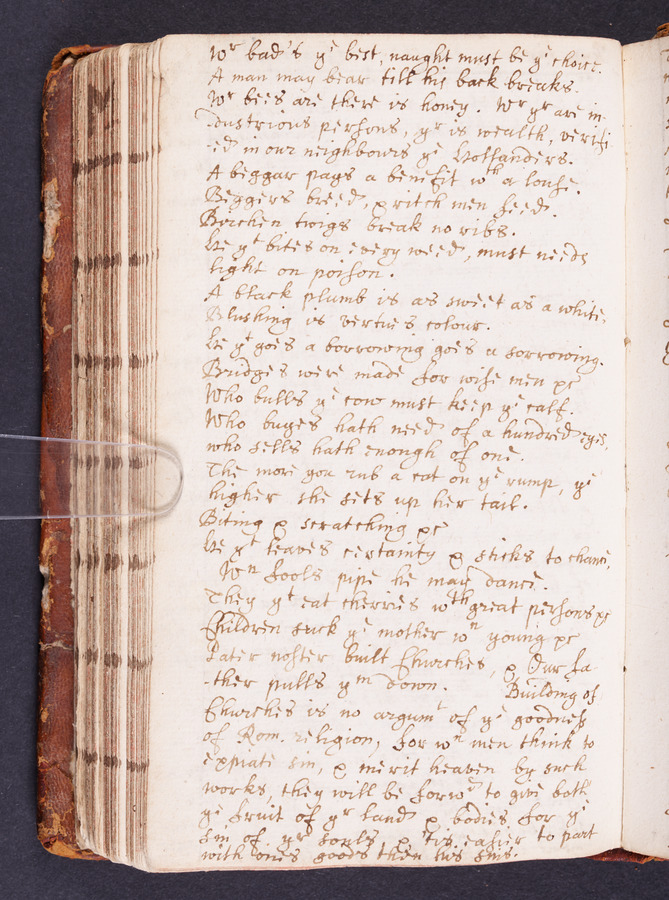 M.
Wr bad's ye best, naught must be ye choice.
A man may bear till his back breaks.
Wr bees are there is honey. Wr yr are in-
dustrious persons, yr is wealth, verifi-
ed in our neighbours ye Hollanders.
A beggar pays a benefit wth a louse.
Beggers breed, & ritch men feed.
Birchen twigs break no ribs.
He yt bites on every weed, must needs
light on poison.
A black plumb is as sweet as a white.
Blushing is vertues colour.
He yt goes a borrowing goes a sorrowing.
Bridges were made for wise men &c
Who bulls ye cow must keep ye calf.
Who buyes hath need of a hundred eyes,
who sells hath enough of one.
The more you rub a cat on ye rump, ye
higher she sets up her tail.
Biting & scratching &c
He yt leaves certainty & sticks to chance,
Wn fools pipe he may dance.
They yt eat cherries wth great persons &c
Children suck ye mother wn young &c
Pater noster built Churches, & Our fa-
ther pulls ym down. Building of
Churches is no argumt of ye goodness
of Rom. religion, for wn men think to
expiate sin, & merit heaven by such
works, they will be forwd to give both
ye fruit of yr land & bodies for ye
sin of yr souls & 'tis easier to part
with ones goods then his sins.